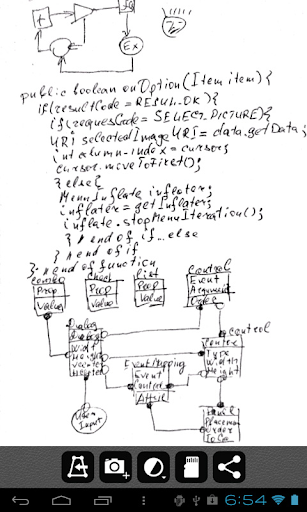 EX
public boolean onOption(Item item){
if(resultCode = RESUL_OK){
if(requesCode = SELECT_PICTURE){
URI selectedImage URI = data.getData;
int column-index = cursor;
cursor.moveToFirct();
} else{
MenuInflate infloter;
inflater = getInflater;
inflate.stopMenuIteration();
} // end of if...else
} // end of if
} // end of function
combo
check
list
Control
Prop
Value
Prop
Value
Prop
Value
Event
Argument
Order
Dialog
Width
Height
control
Type
Width
Height
Event Mapping
Event
Control
User
Input
6:54